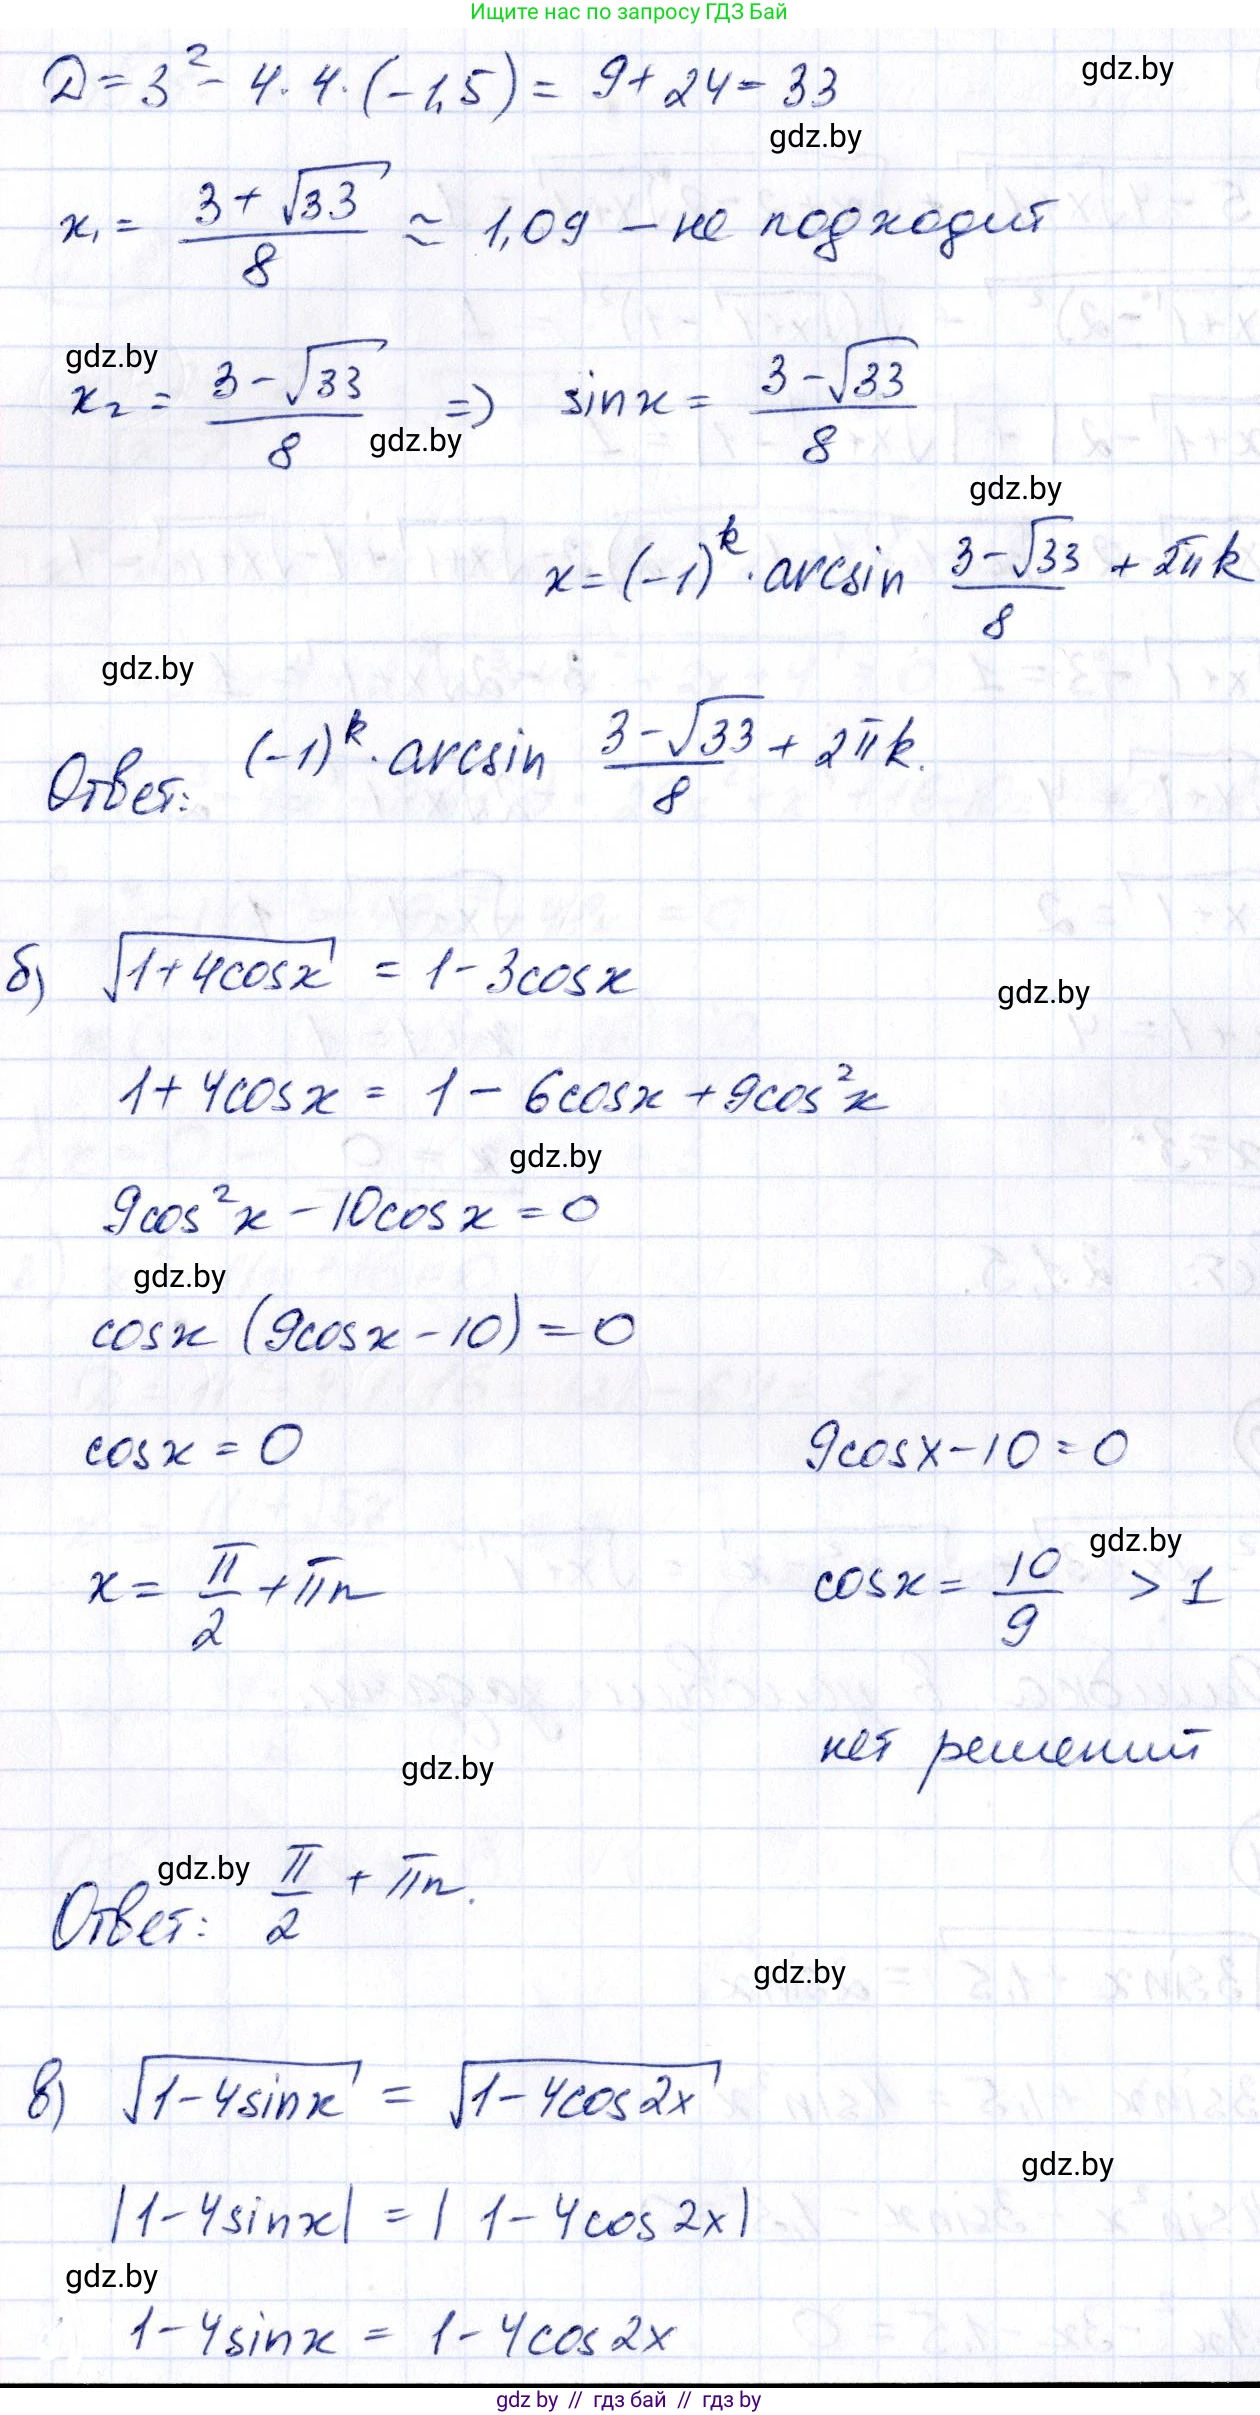 Ищите нас по запросу ГДЗ Бай
D = 3² - 4 · 4 · (-1,5) = 9 + 24 = 33
gdz.by
gdz.by
x₁ = (3 + √33)/8 ≈ 1,09 - не подходит
gdz.by
x₂ = (3 - √33)/8 => sinx = (3 - √33)/8
gdz.by
gdz.by
x = (-1)^k · arcsin (3 - √33)/8 + 2πk
gdz.by
Ответ: (-1)^k · arcsin (3 - √33)/8 + 2πk.
б) √(1+4cosx) = 1 - 3cosx
gdz.by
1 + 4cosx = 1 - 6cosx + 9cos²x
gdz.by
9cos²x - 10cosx = 0
gdz.by
cosx (9cosx - 10) = 0
cosx = 0 9cosx - 10 = 0
gdz.by
x = π/2 + πn cosx = 10/9 > 1
нет решений
gdz.by
gdz.by
Ответ: π/2 + πn.
gdz.by
в) √(1-4sinx) = √(1-4cos2x)
gdz.by
|1-4sinx| = |1-4cos2x|
gdz.by
1-4sinx = 1-4cos2x
gdz by // гдз бай // гдз by